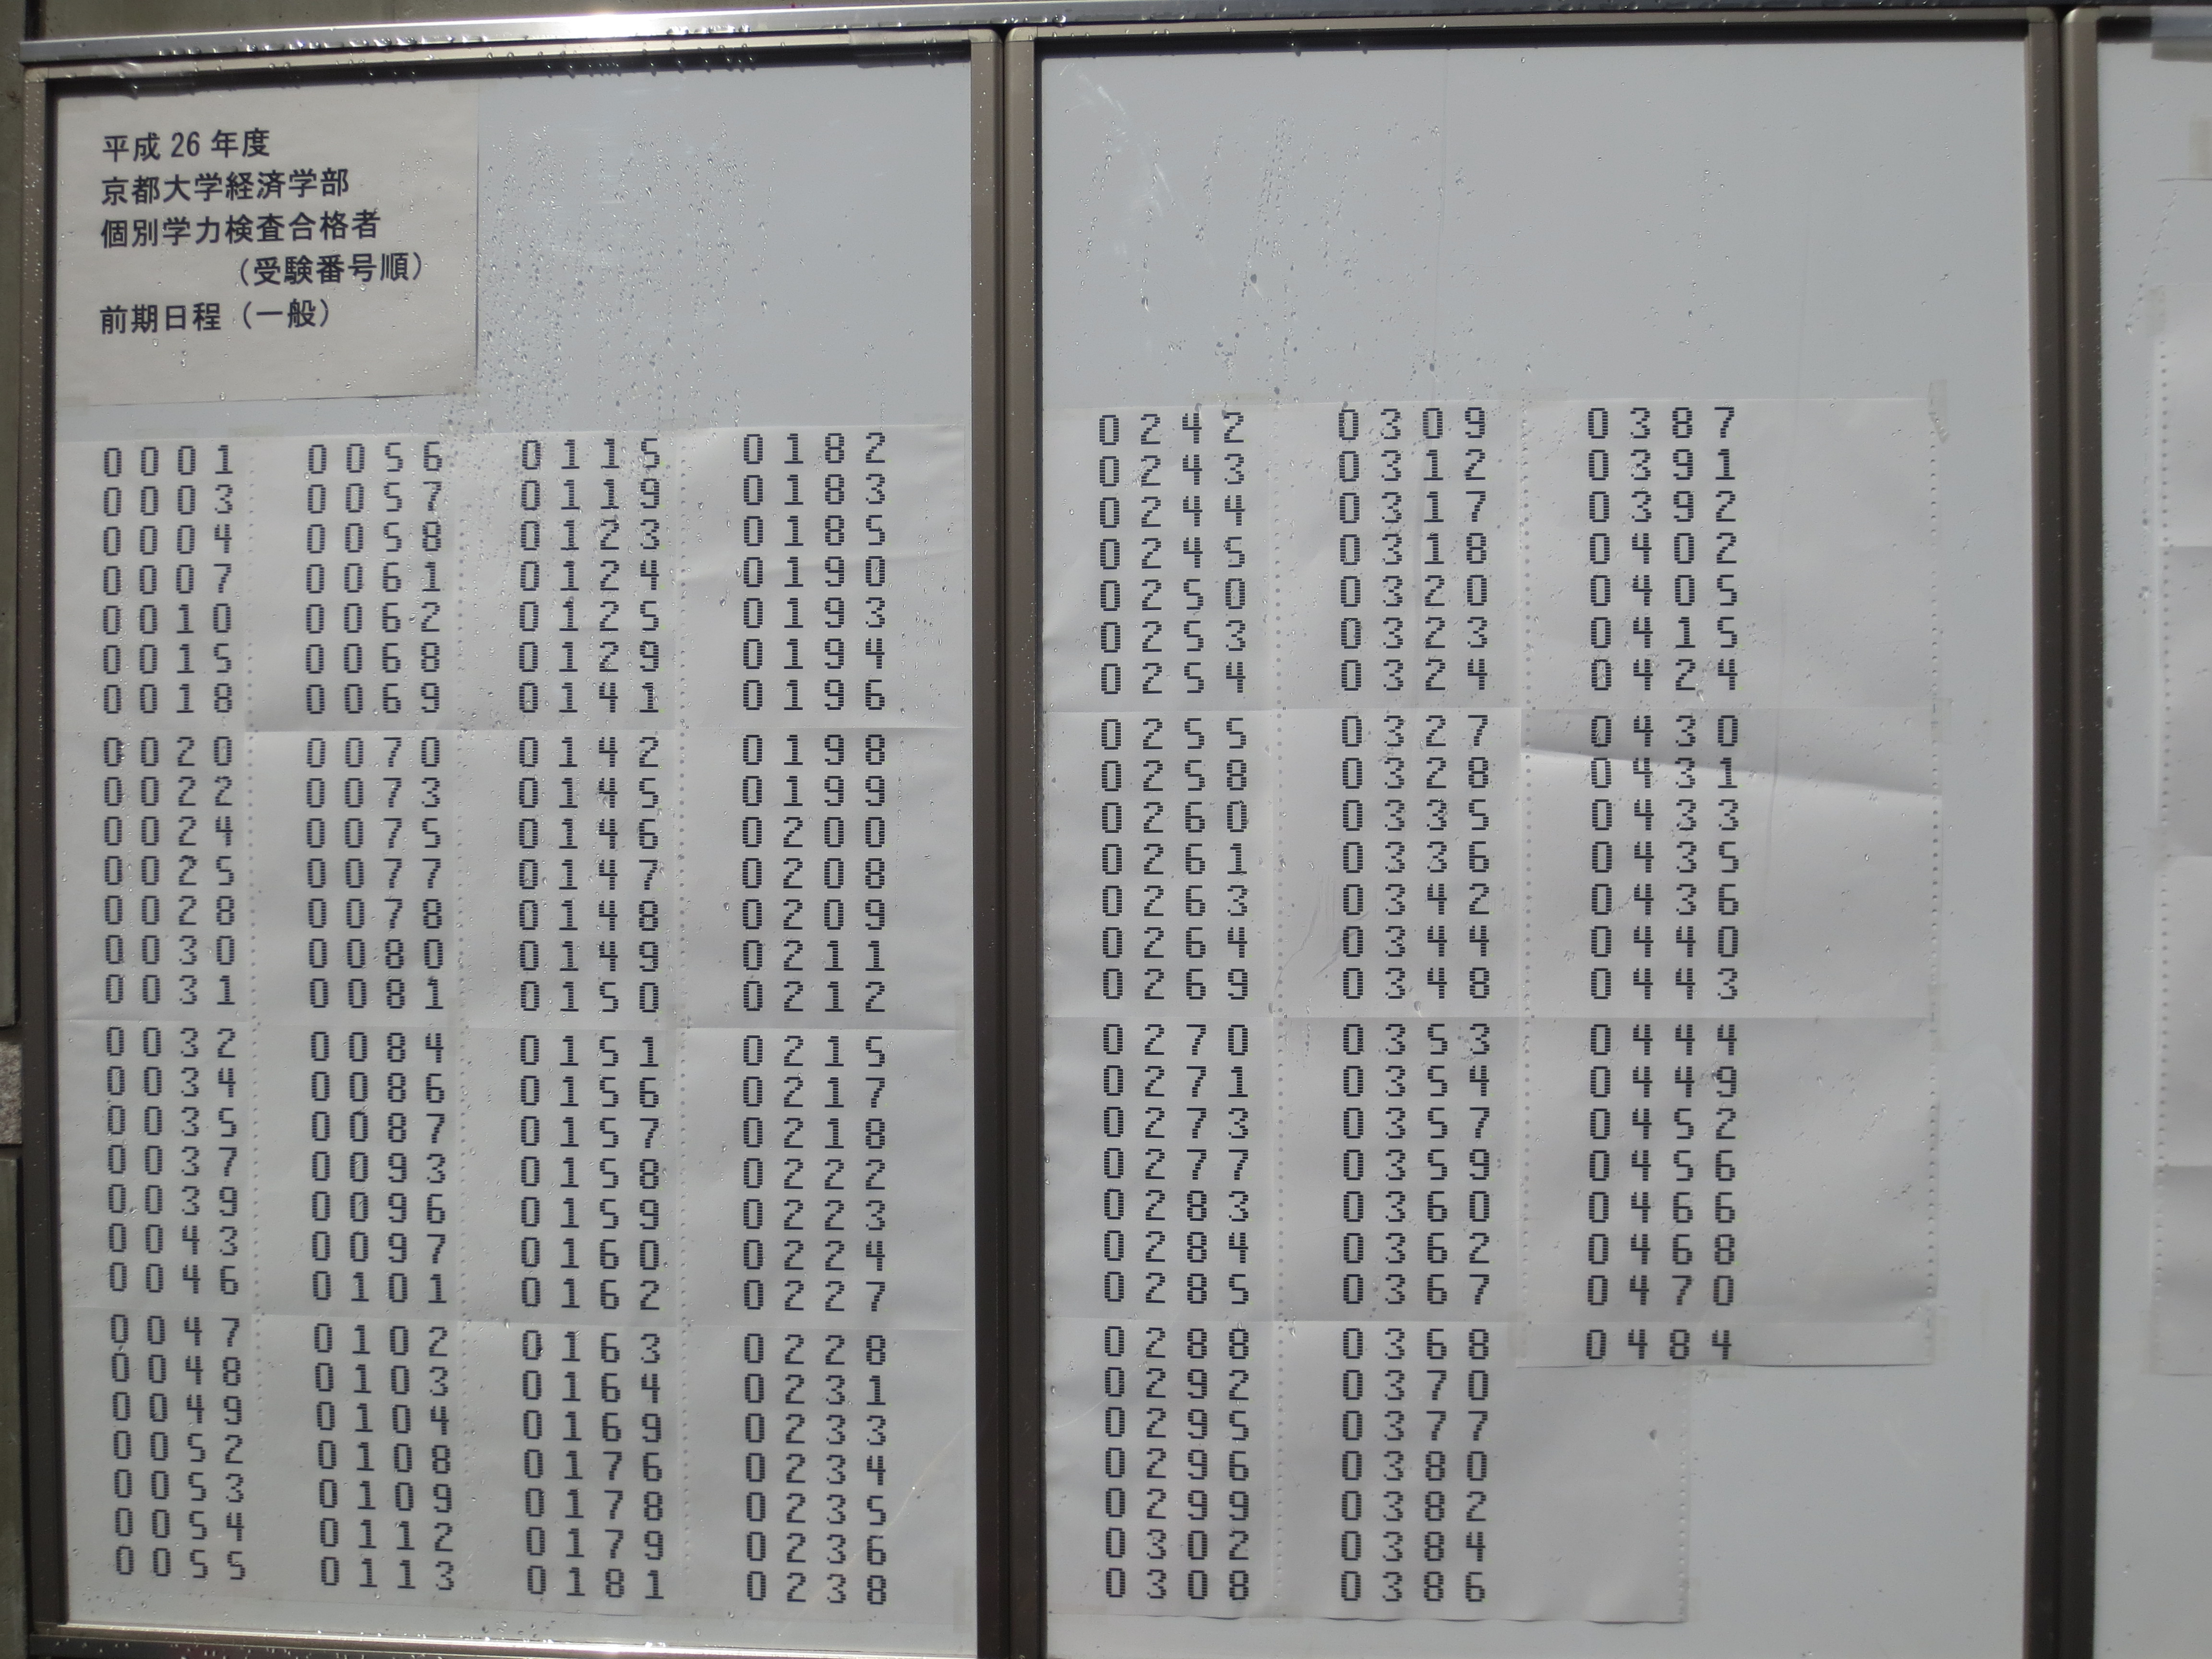 平成 26 年度
京都大学経済学部
個別学力検査合格者
(受験番号順)
前期日程 (一般)
0001
0003
0004
0007
0010
0015
0018
0020
0022
0024
0025
0028
0030
0031
0032
0034
0035
0037
0039
0043
0046
0047
0048
0049
0052
0053
0054
0055
0056
0057
0058
0061
0062
0068
0069
0070
0073
0075
0077
0078
0080
0081
0084
0086
0087
0093
0096
0097
0101
0102
0103
0104
0108
0109
0112
0113
0115
0119
0123
0124
0125
0129
0141
0142
0145
0146
0147
0148
0149
0150
0151
0156
0157
0158
0159
0160
0162
0163
0164
0169
0176
0178
0179
0181
0182
0183
0185
0190
0193
0194
0196
0198
0199
0200
0208
0209
0211
0212
0215
0217
0218
0222
0223
0224
0227
0228
0231
0233
0234
0235
0236
0238
0242
0243
0244
0245
0250
0253
0254
0255
0258
0260
0261
0263
0264
0269
0270
0271
0273
0277
0283
0284
0285
0288
0292
0295
0296
0299
0302
0308
0309
0312
0317
0318
0320
0323
0324
0327
0328
0335
0336
0342
0344
0348
0353
0354
0357
0359
0360
0362
0367
0368
0370
0377
0380
0382
0384
0386
0387
0391
0392
0402
0405
0415
0424
0430
0431
0433
0435
0436
0440
0443
0444
0449
0452
0456
0466
0468
0470
0484